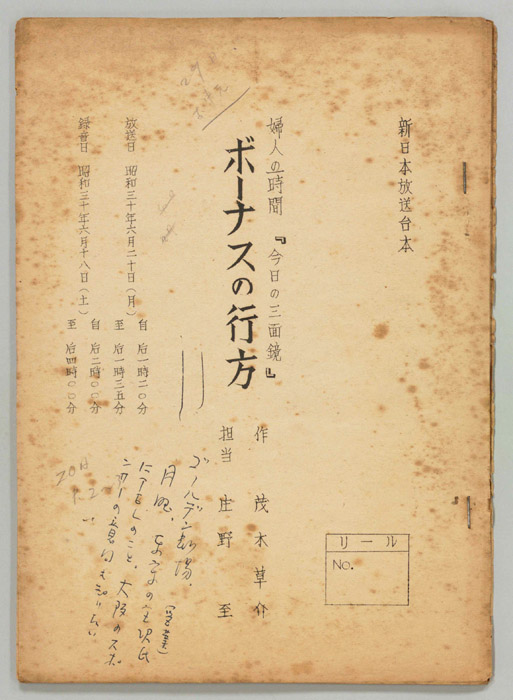 新日本放送台本
婦人の時間 『今日の三面鏡』
ボーナスの行方
作 茂木草介
担当 庄野至
放送日 昭和三十年六月二十日(月)
自 后一時二〇分
至 后一時三五分
録音日 昭和三十年六月十八日(土)
自 后二時〇〇分
至 后四時〇〇分
リール
No.
ゴールデン劇場、
月晩、
のこと、大阪のスポ
ンサーの意向も知りたい
20日